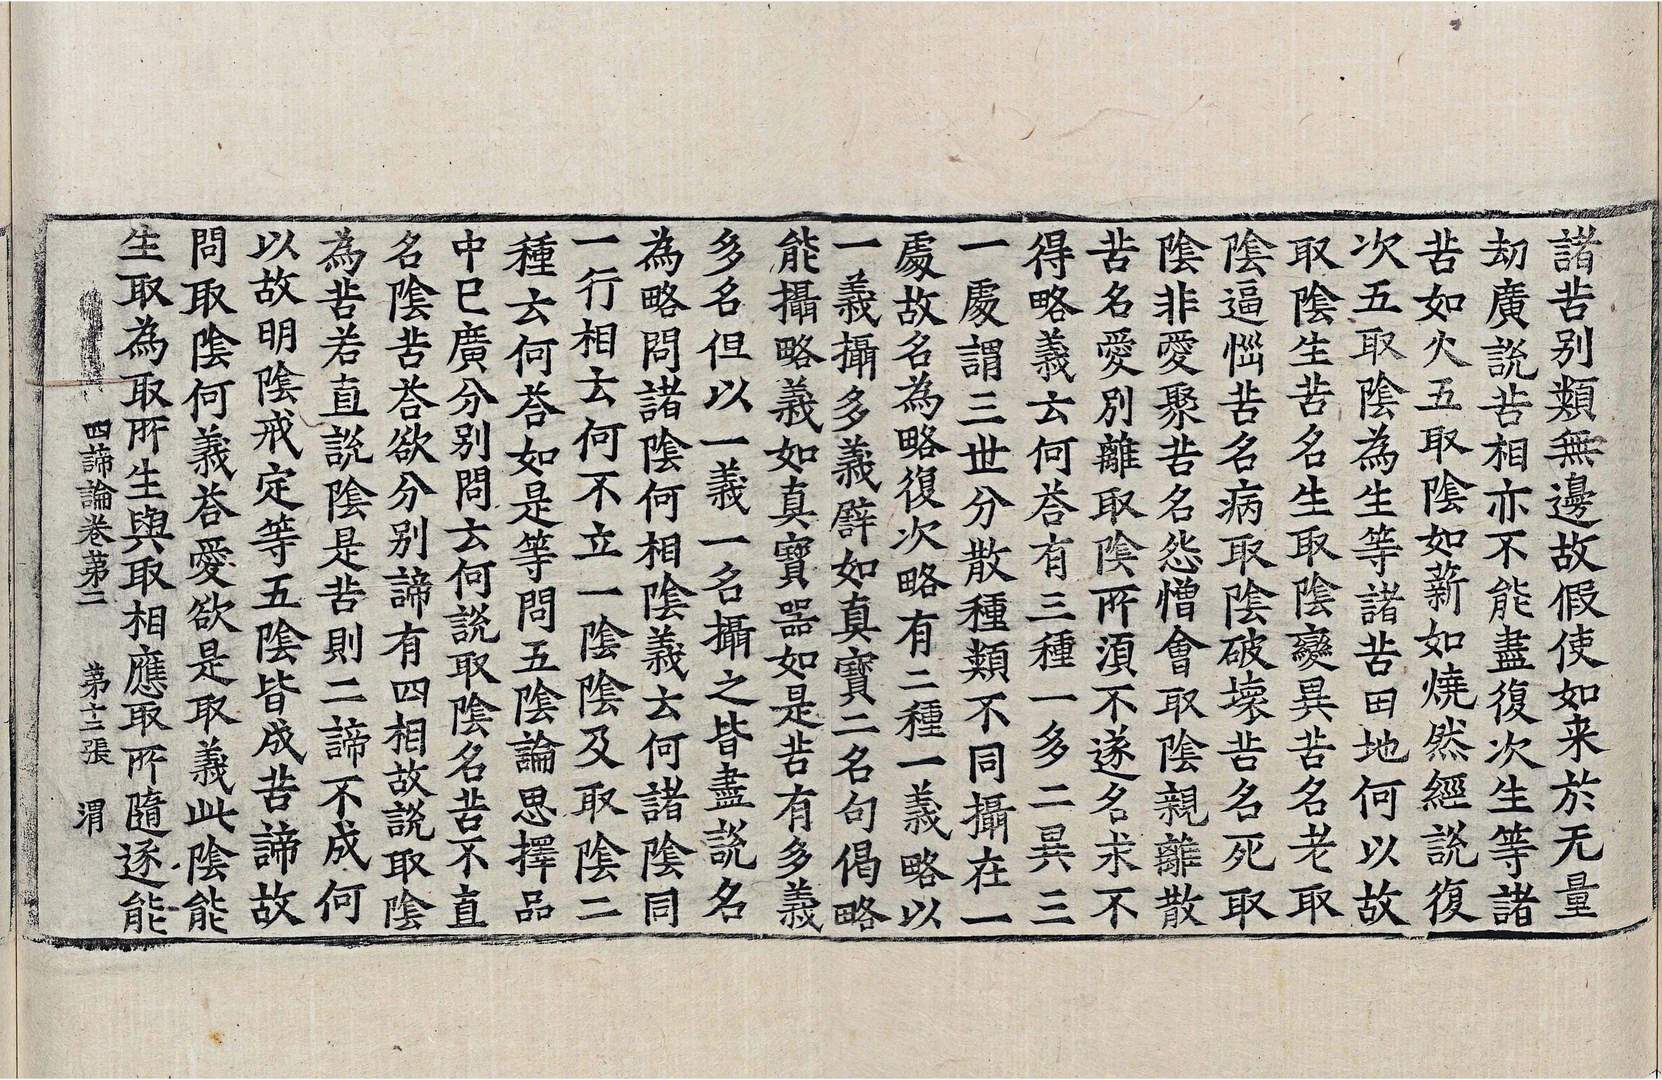 諸苦别類無邊故假使如来於无量
劫廣說苦相亦不能盡復次生等諸
苦如火五取陰如薪如燒然經說復
次五取陰為生等諸苦田地何以故
取陰生苦名生取陰變異苦名老取
陰逼惱苦名病取陰破壞苦名死取
陰非愛聚苦名怨憎會取陰親離散
苦名愛別離取陰所須不遂名求不
得略義云何荅有三種一多二異三
一處謂三世分散種類不同攝在一
處故名為略復次略有二種一義略以
一義攝多義譬如真寶二名句偈略
能攝略義如真寶器如是苦有多義
多名但以一義一名攝之皆盡說名
為略問諸陰何相陰義云何諸陰同
一行相云何不立一陰陰及取陰二
種云何荅如是等問五陰論思擇品
中已廣分别問云何說取陰名苦不直
名陰苦荅欲分别諦有四相故說取陰
為苦若直說陰是苦則二諦不成何
以故明陰戒定等五陰皆成苦諦故
問取陰何義荅愛欲是取義此陰能
生取為取所生與取相應取所隨逐能
四諦論卷第二 第十三張 渭